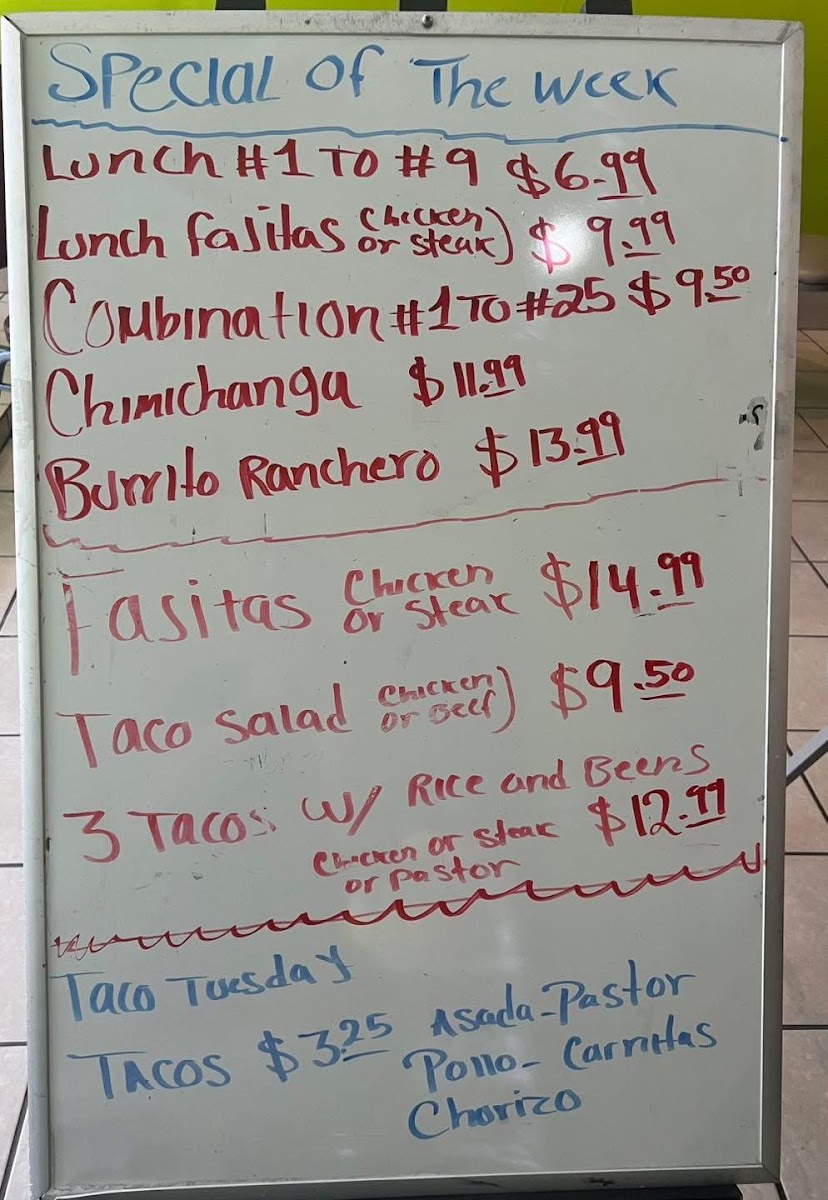 Special Of The Week
Lunch #1 TO #9 $6.99
Lunch Fajitas (Chicken or Steak) $9.99
Combination #1 TO #25 $9.50
Chimichanga $11.99
Burrito Ranchero $13.99
Fajitas Chicken or Steak $14.99
Taco Salad (Chicken or Beef) $9.50
3 Tacos w/ Rice and Beens
Chicken or Steak or Pastor $12.99
Taco Tuesday
Tacos $3.25 Asada-Pastor
Pollo-Carnitas
Chorizo